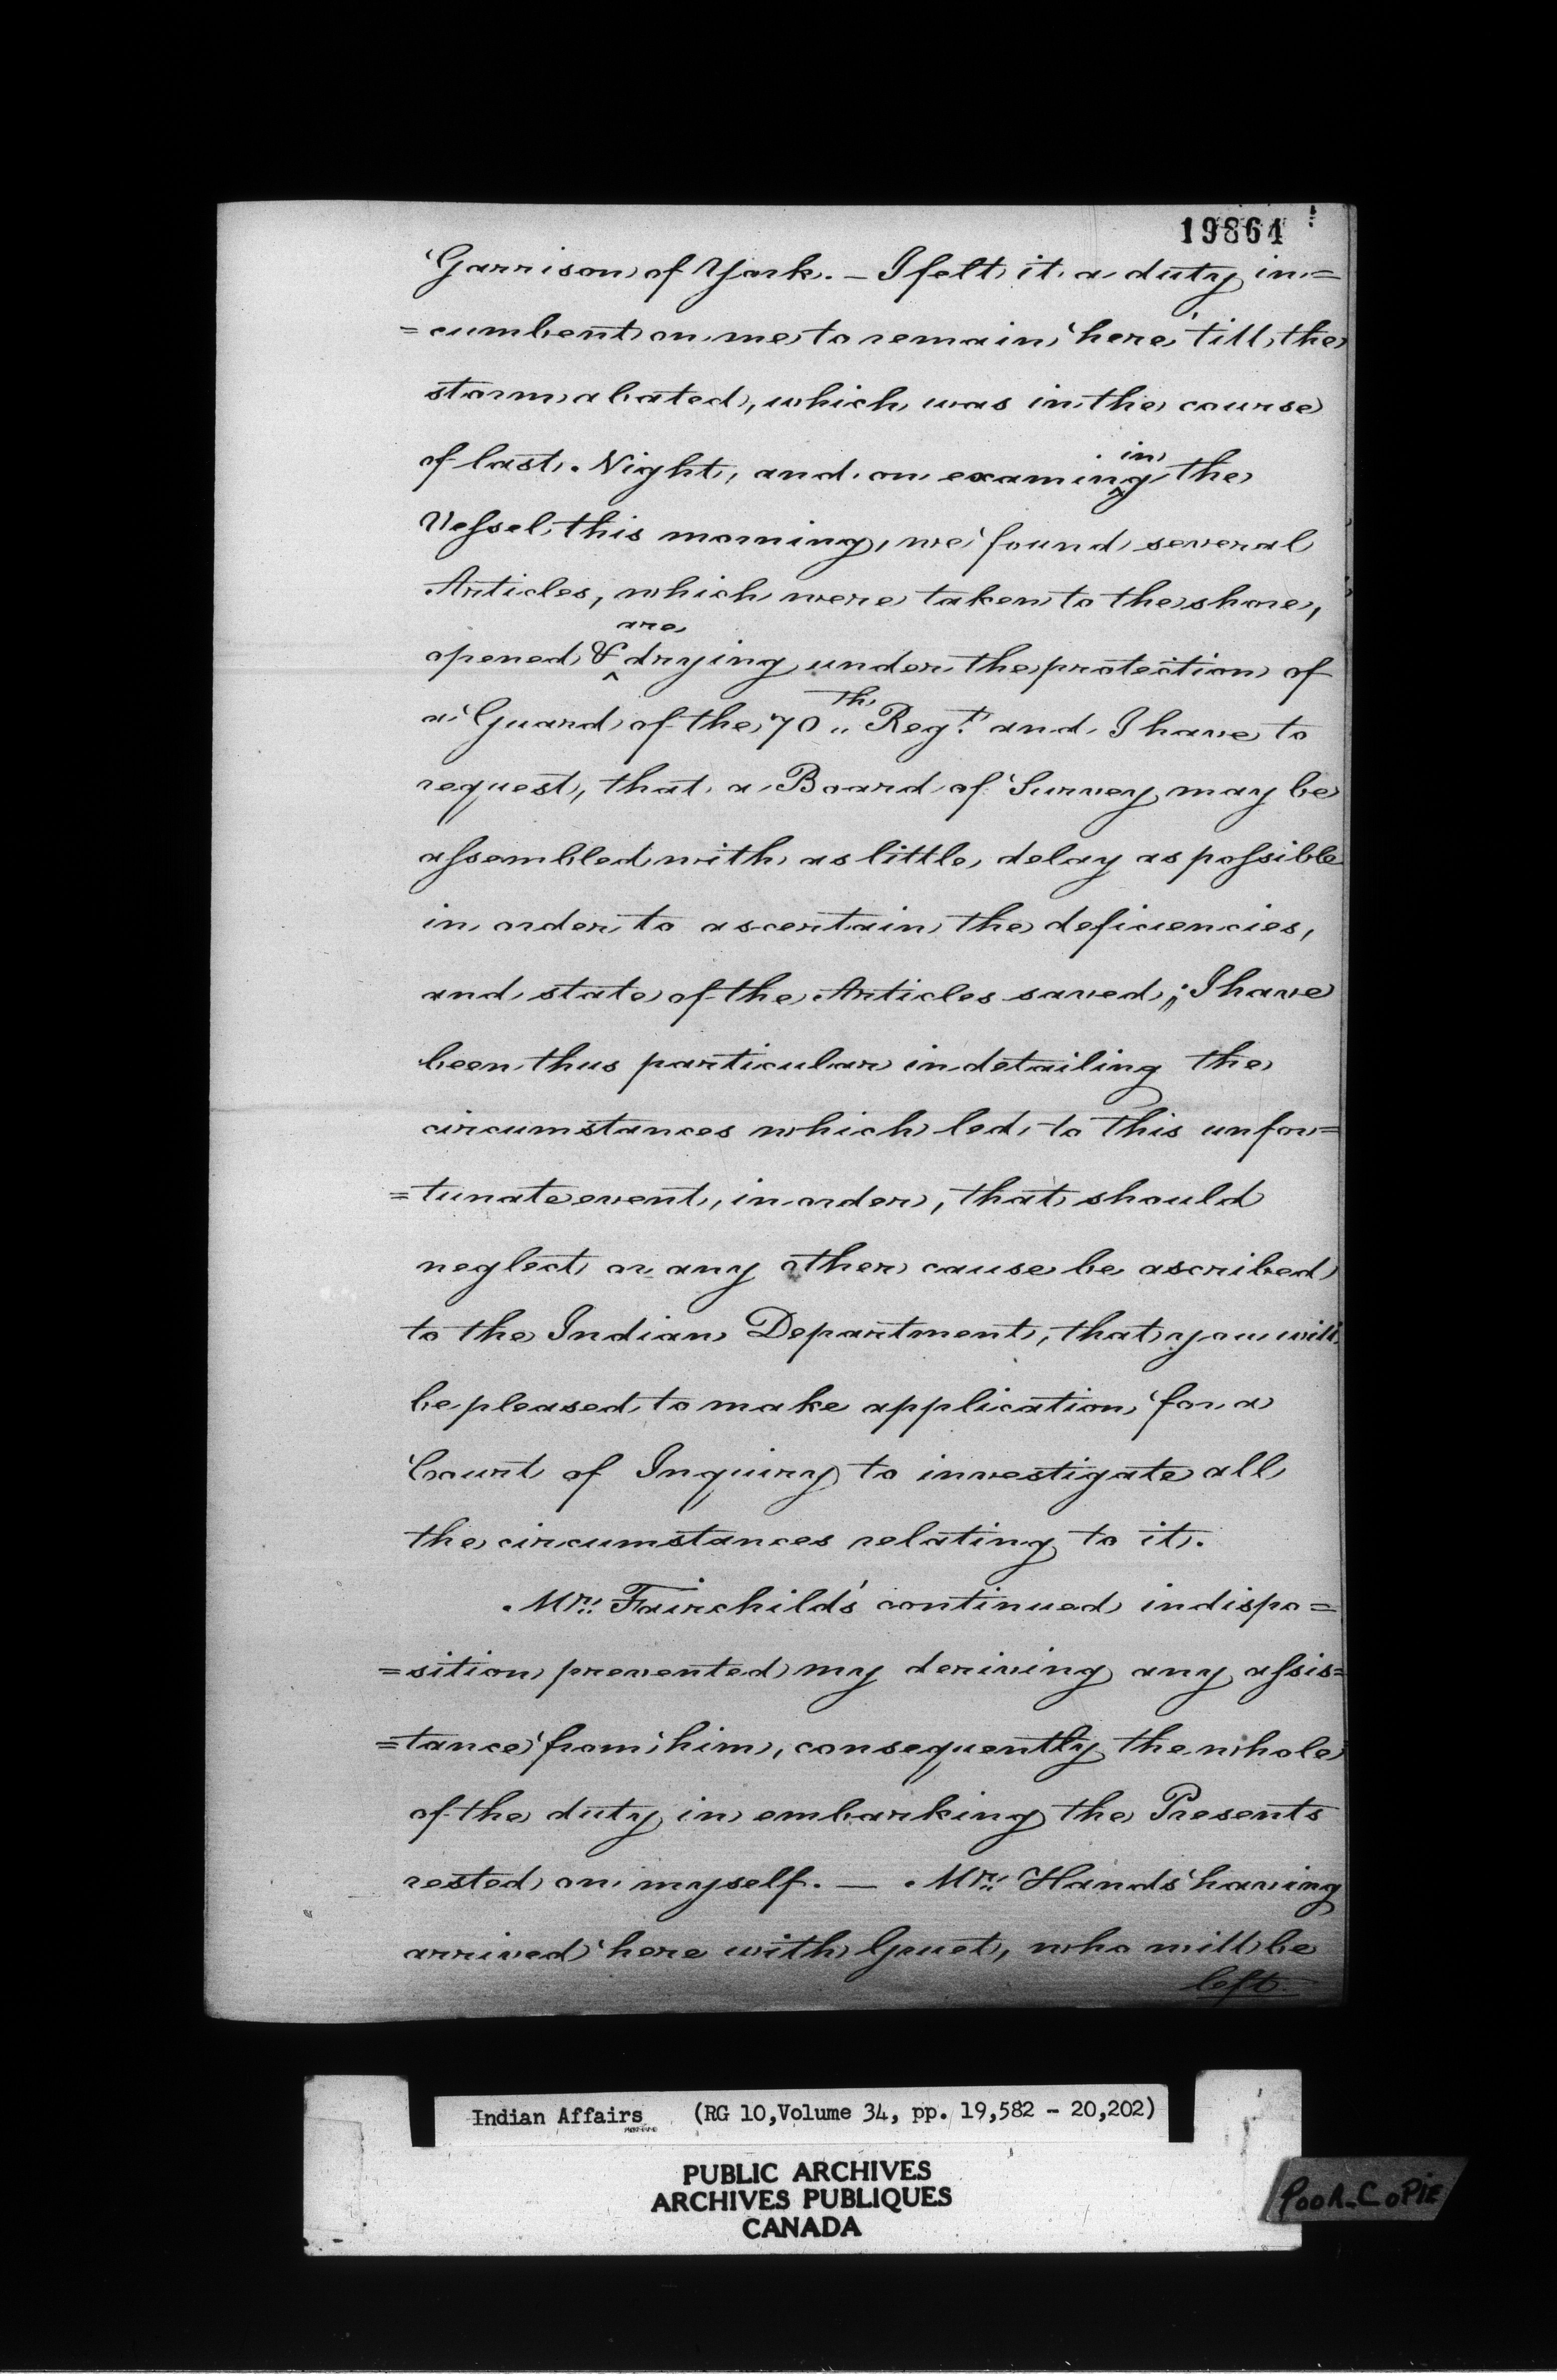 19864
Garrison of York. — I felt it a duty in=
=cumbent on me to remain here 'till the
storm abated, which was in the course
of last Night, and on examining in the
Vessel this morning, we found several
Articles, which were taken to the shore,
opened & are drying under the protection of
a Guard of the 70th Regt. and I have to
request, that a Board of Survey may be
assembled with as little delay as possible
in order to ascertain the deficiencies,
and state of the Articles saved; I have
been thus particular in detailing the
circumstances which led to this unfor=
=tunate event, in order, that should
neglect or any other cause be ascribed
to the Indian Department, that you will
be pleased to make application for a
Court of Inquiry to investigate all
the circumstances relating to it.
Mr. Fairchild's continued indispo=
=sition prevented my deriving any assis=
=tance from him, consequently the whole
of the duty in embarking the Presents
rested on myself. — Mr. Hands having
arrived here with Gruet, who will be
left
Indian Affairs (RG 10, Volume 34, pp. 19,582 - 20,202)
PUBLIC ARCHIVES
ARCHIVES PUBLIQUES
CANADA
POOR COPIE